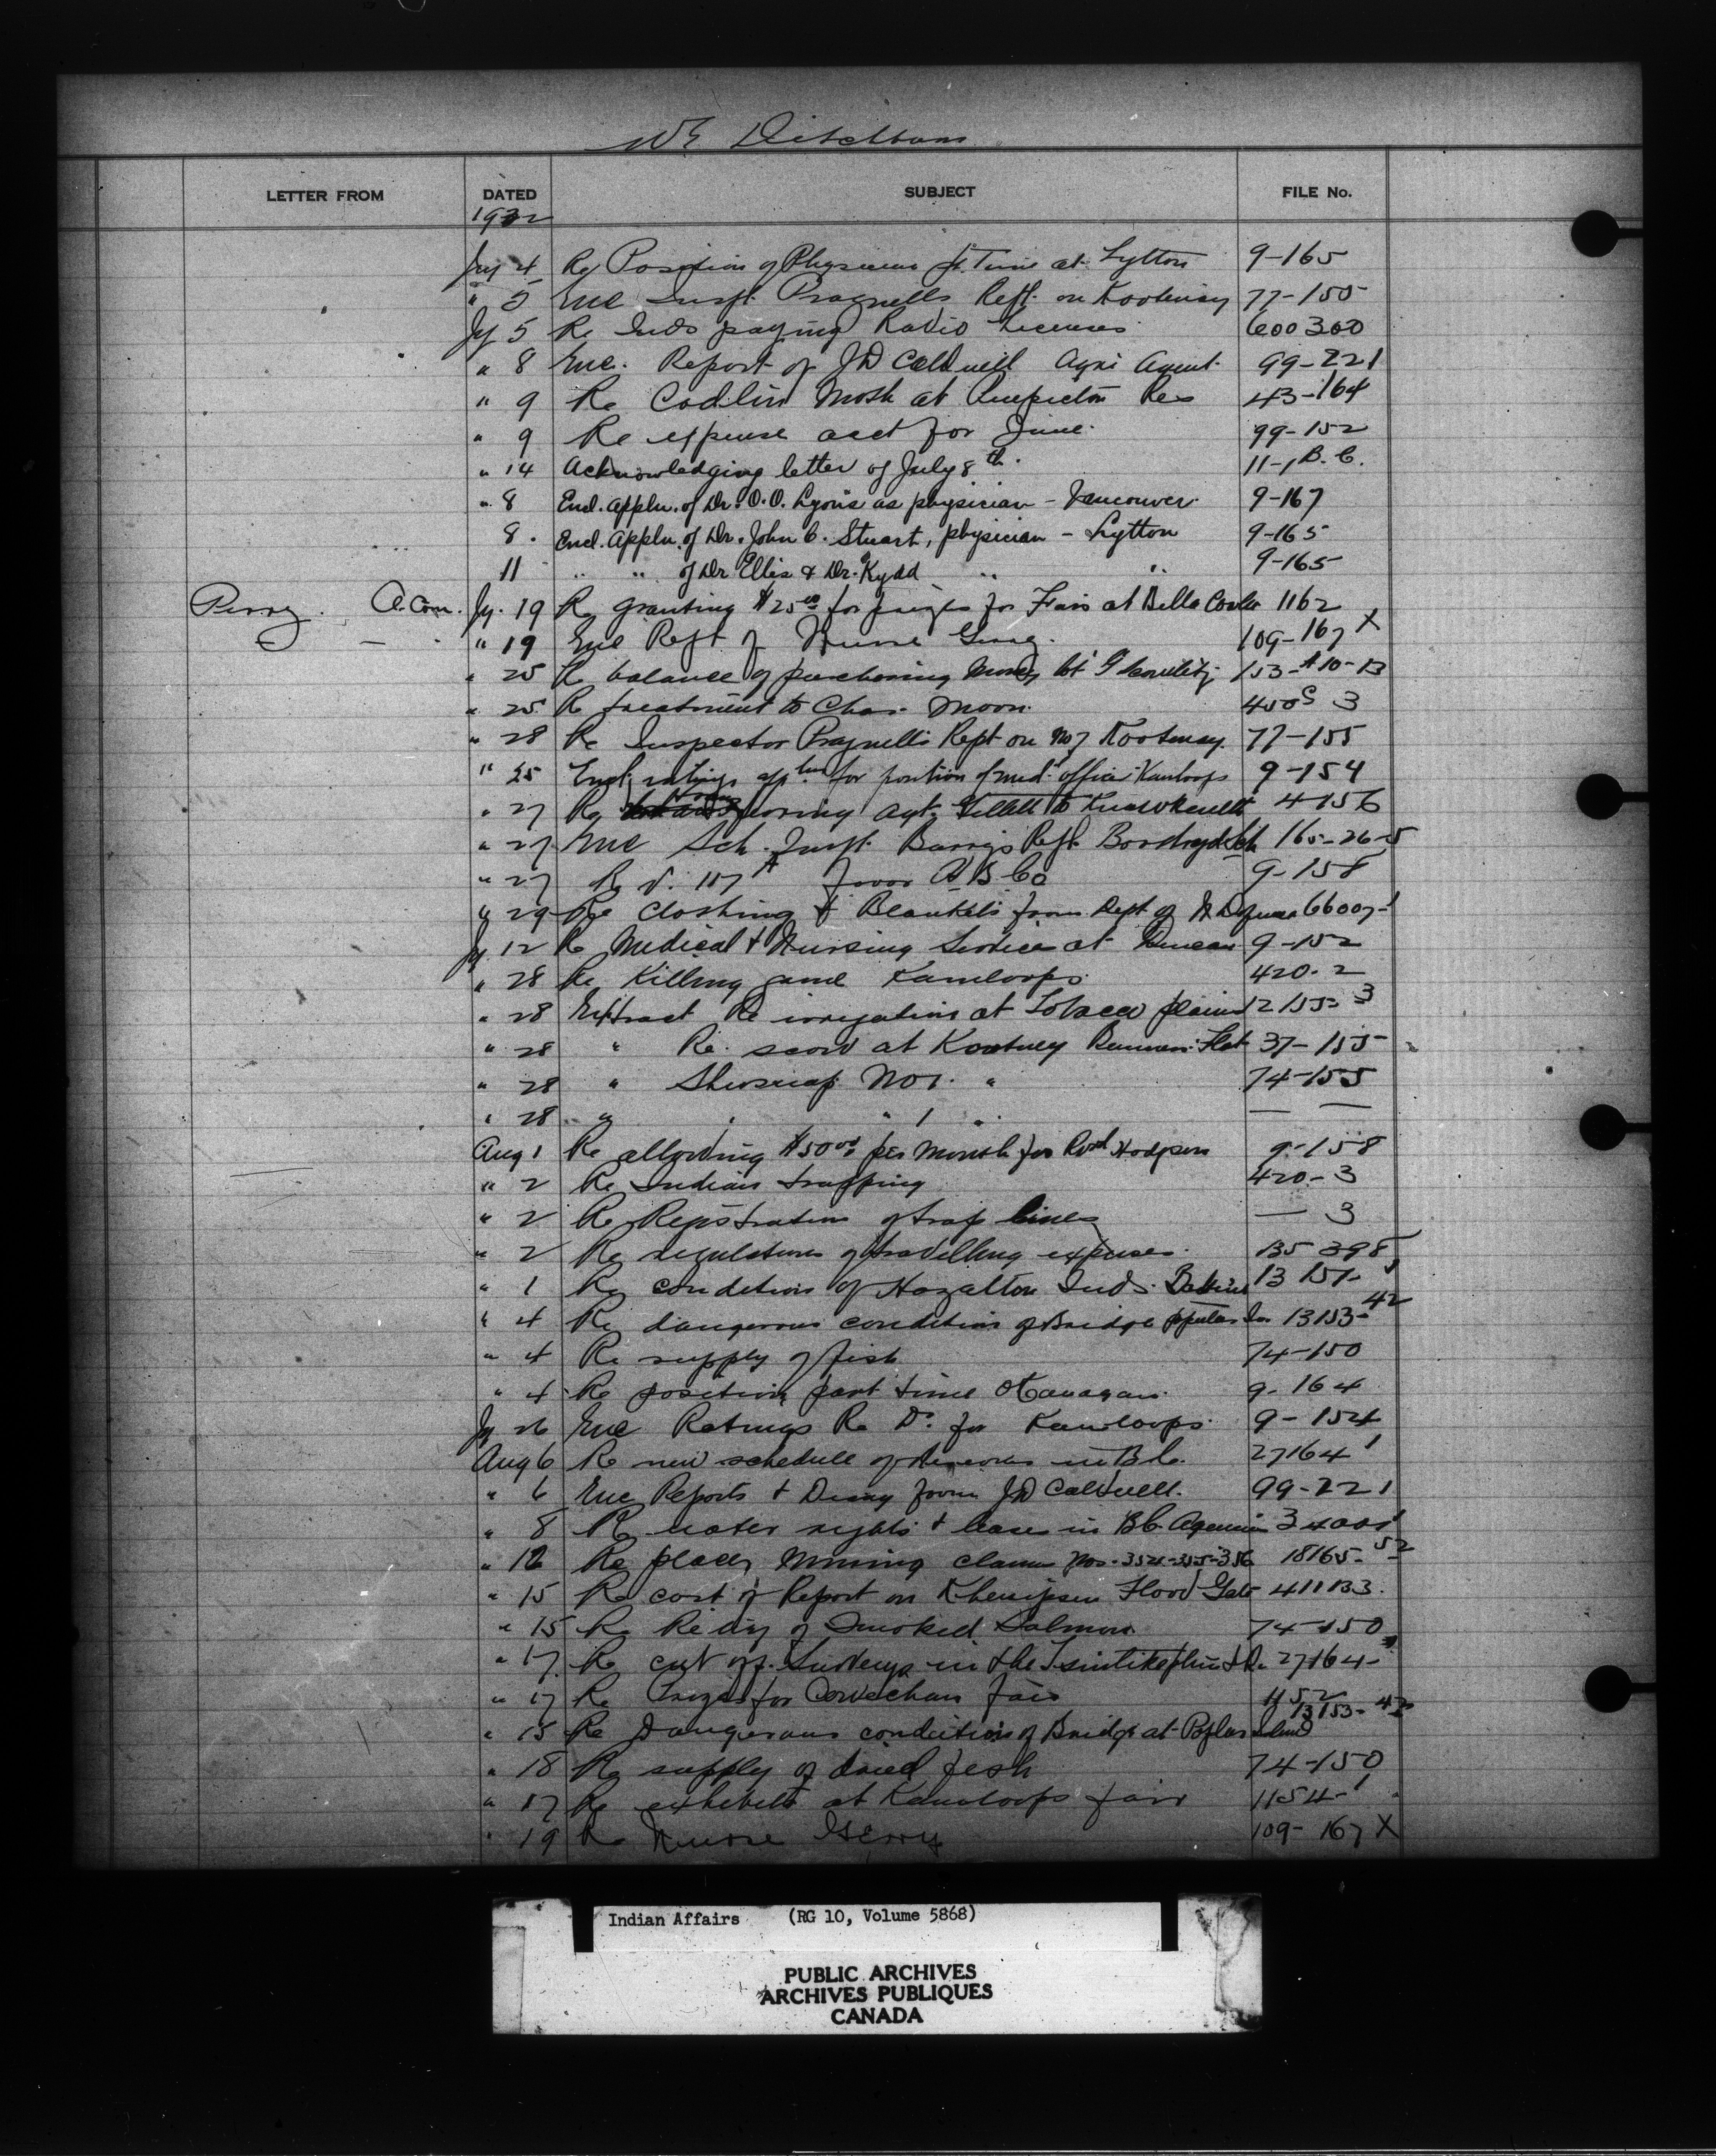 WE Ditchburn
LETTER FROM DATED SUBJECT FILE No.
1932
Jy 4 Re Position of Physician pt Time at Lytton 9-165
" 5 Enc Inspt. Pragnells Rept. on Kootenay 77-155
Jy 5 Re Inds paying Radio Licenses 600300
" 8 Enc. Report of JD Caldwell Agri Agent. 99-221
" 9 Re Codlin Moth at Penticton Res 43-164
" 9 Re expense acct for June. 99-152
" 14 Acknowledging letter of July 8th. 11-1 B.C.
" 8 Encl. appln. of Dr. O.O. Lyons as physician - Vancouver. 9-167
8. Encl. Appln. of Dr. John C. Stuart, physician - Lytton 9-165
11 " " of Dr Ellis & Dr. Kydd " " 9-165
Perry A. Com. Jy. 19 Re granting $25.00 for prizes for Fair at Bella Coola 1162
" 19 Enc Rept of Nurse 109-167 X
" 25 Re balance of purchasing Money lot 9 153-A10-13
" 25 Re treatment to Chas. Moon. 450S 3
" 28 Re Inspector Pragnells Rept on No 7 Kootenay. 77-155
" 25 Encl. ratings applns for position of med. officer Kamloops 9-154
" 27 Re Agt. to 4-156
" 27 Enc Sch. Inspt. Barrys Rept. Sch 165-26-5
" 27 Re V. 117 A favor H B Co 9-158
" 29 Re Clothing & Blankets from Dept of N Defense 66007-1
Jy. 12 Re Medical & Nursing Services at Duncan 9-152
" 28 Re Killing game Kamloops. 420-2
" 28 Extract Re irrigation at Tobacco plains 12155-3
" 28 " Re. scow at Kootney Flat 37-155
" 28 " Shuswap No 1. " 74-155
" 28 " " " 1 " — —
Aug 1 Re allowing $50.00 per Month for Robt Hodgson 9-158
" 2 Re Indian trapping 420-3
" 2 Re Registration of trap lines — 3
" 2 Re regulations of travelling expenses. 135 398
" 1 Re condition of Hazalton Inds. Babine 13 151-1
" 4 Re dangerous condition of Bridge poplar Isn 13153-42
" 4 Re supply of fish 74-150
" 4 Re position part time Okanagan. 9-164
Jy 26 Enc Ratings Re Dr. for Kamloops. 9-154
Aug 6 Re new schedule of Reserves in B.C. 27164 1
" 6 Enc Reports & Diary from JD Caldwell. 99-221
" 8 Re water rights & leases in BC Agencies 34001
" 12 Re placer Mining claims Nos. 354-355-356 18165-52
" 15 Re cost of Report on Flood Gate 411133.
" 15 Re Re dry of Smoked Salmon 74-150
" 17 Re cut off Surveys in the 27164-
" 17 Re Prizes for Cowichan fair 1152
" 15 Re Dangerous condition of Bridge at Poplar Island 13153-42
" 18 Re supply of dried fish 74-150
" 17 Re exhibits at Kamloops fair 1154-1
" 19 Re Nurse Gerry 109-167 X
Indian Affairs (RG 10, Volume 5868)
PUBLIC ARCHIVES
ARCHIVES PUBLIQUES
CANADA